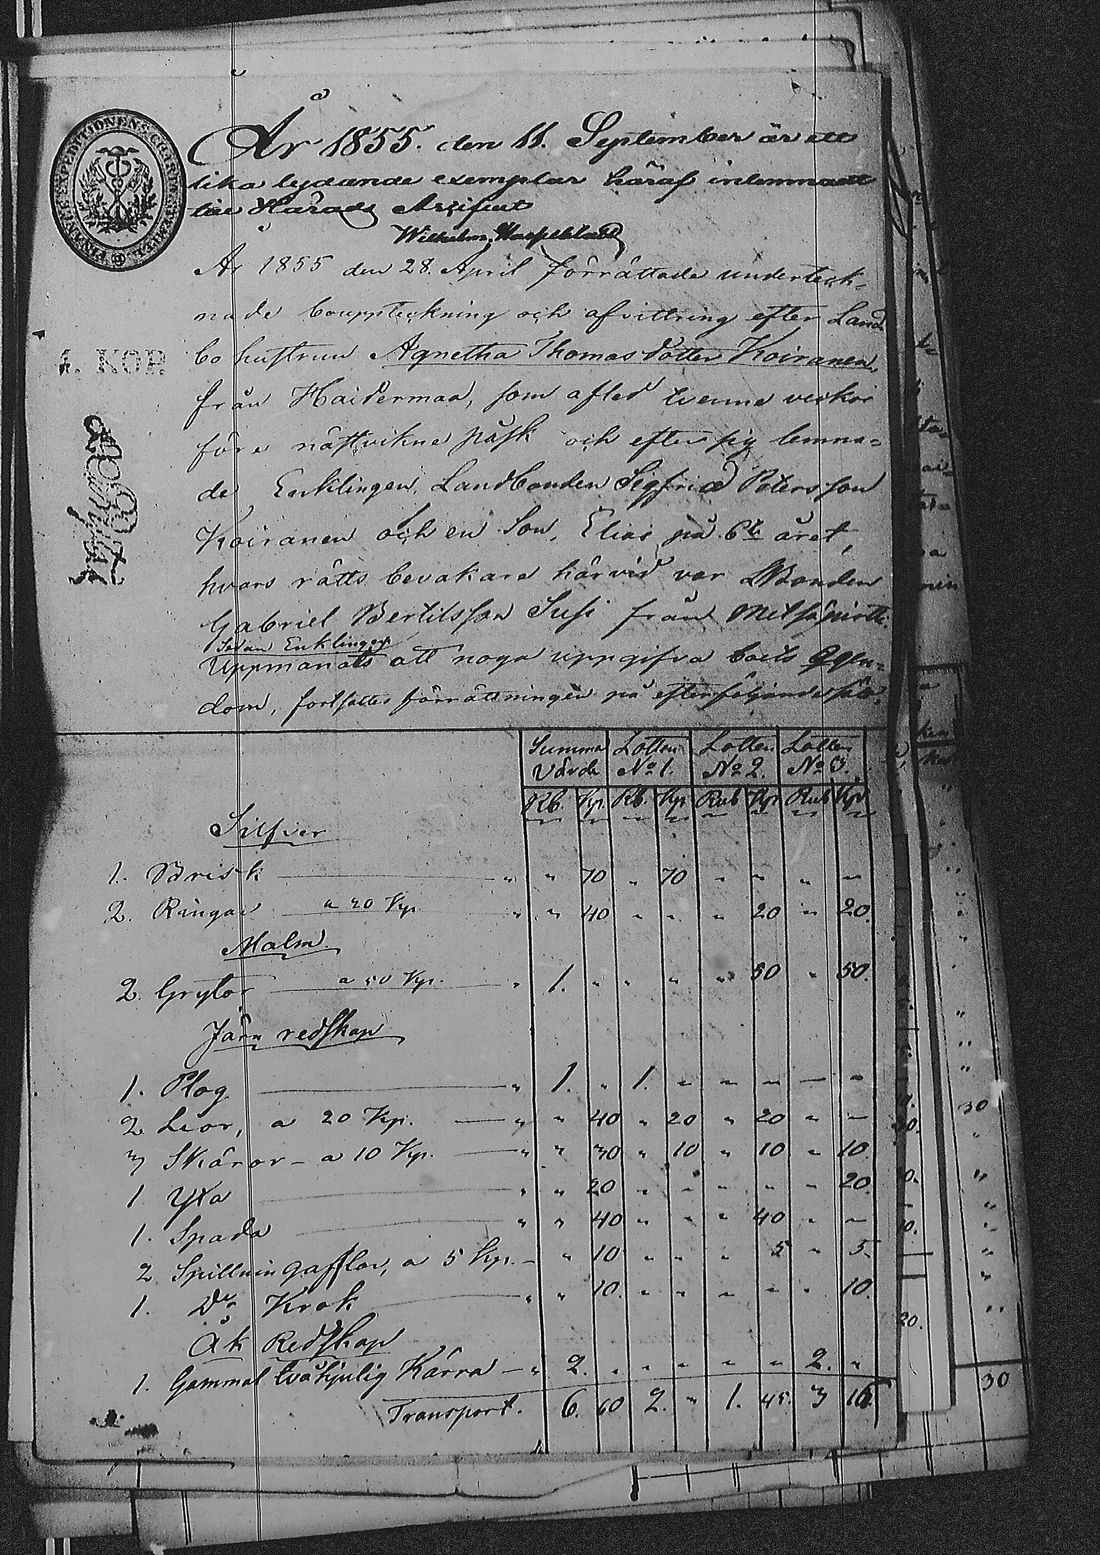 FINANCE EXPEDITIONENS CHARTÆ SIGILLATÆ
År 1855. den 11. September är ett
lika lydande exemplar häraf inlemnadt
till Härads Arkifvet
Wilhelm
År 1855 den 28. April förrättade underteck-
nade bouppteckning och afvittring efter Land-
bo hustrun Agnetha Thomasdotter Koiranen,
från Haidermaa, som afled tvenne veckor
före nästvikne påsk och efter sig lemna=
de Enklingen, Landbonden Sigfrid Petersson
Koiranen och en Son, Elias på 6te året,
hvars rätts bevakare härvid var Bonden
Gabriel Bertilsson Susi från Metsäpirtti.
Sedan Enklingen
Uppmanats att noga uppgifva boets Egen=
dom, fortsattes förrättningen på efterföljande sätt.
4. KOP.
Summa Värde Lotten No 1. Lotten No 2. Lotten No 3.
Rb. Kp. Rb. Kp. Rub Kp. Rub Kp.
Silfver
1. Brisk " " 70 " 70 " " " "
2. Ringar a 20 Kp. " " 40 " " " 20 " 20.
Malm
2. Grytor a 50 Kp. " 1. " " " " 50 " 50.
Järn redskap
1. Plog " 1. " 1. " " " " "
2 Lior, a 20 Kp. " " 40 " 20 " 20 " "
3 Skäror a 10 Kp. " " 30 " 10 " 10 " 10.
1. Yxa " " 20 " " " " " 20.
1. Spada " " 40 " " " 40 " "
2 Spillningafflor, a 5 Kp. " 10 " " " 5 " 5.
1. Do Krok " " 10. " " " " " 10.
Åk Redskap
1. Gammal tvåhjulig Kärra " 2. " " " " " 2. "
Transport. 6. 60 2. " 1. 45. 3 15